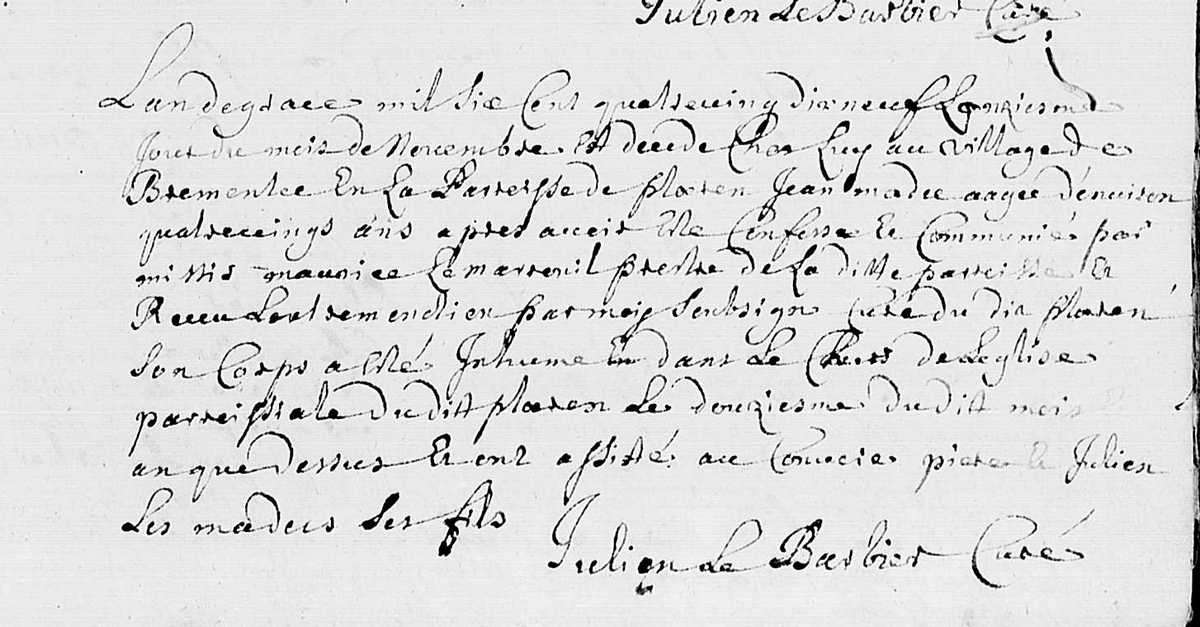 Julien Le Barbier Curé
Lan de grace mil six Cent quatreving dix neuf Le onziesme
Jour du mois de Novembre Est decede Chez Luy au village de
Brementec En La Parroisse de ploeren Jean madec aagee denviron
quatrevings ans apres avoir Este Confesse Et Communié par
missir maurice Le martenil prestre de La ditte parroisse Et
Receu Lextremonction par moy Soubsigne Curé du dit ploeren
Son Corps a Esté Inhume En dans Le Choeur de Leglise
parroissiale du dit ploeren Le douziesme du dit mois
an que dessus Et ont assisté au Convoie piere Et Julien
Les madecs ses fils
Julien Le Barbier Curé